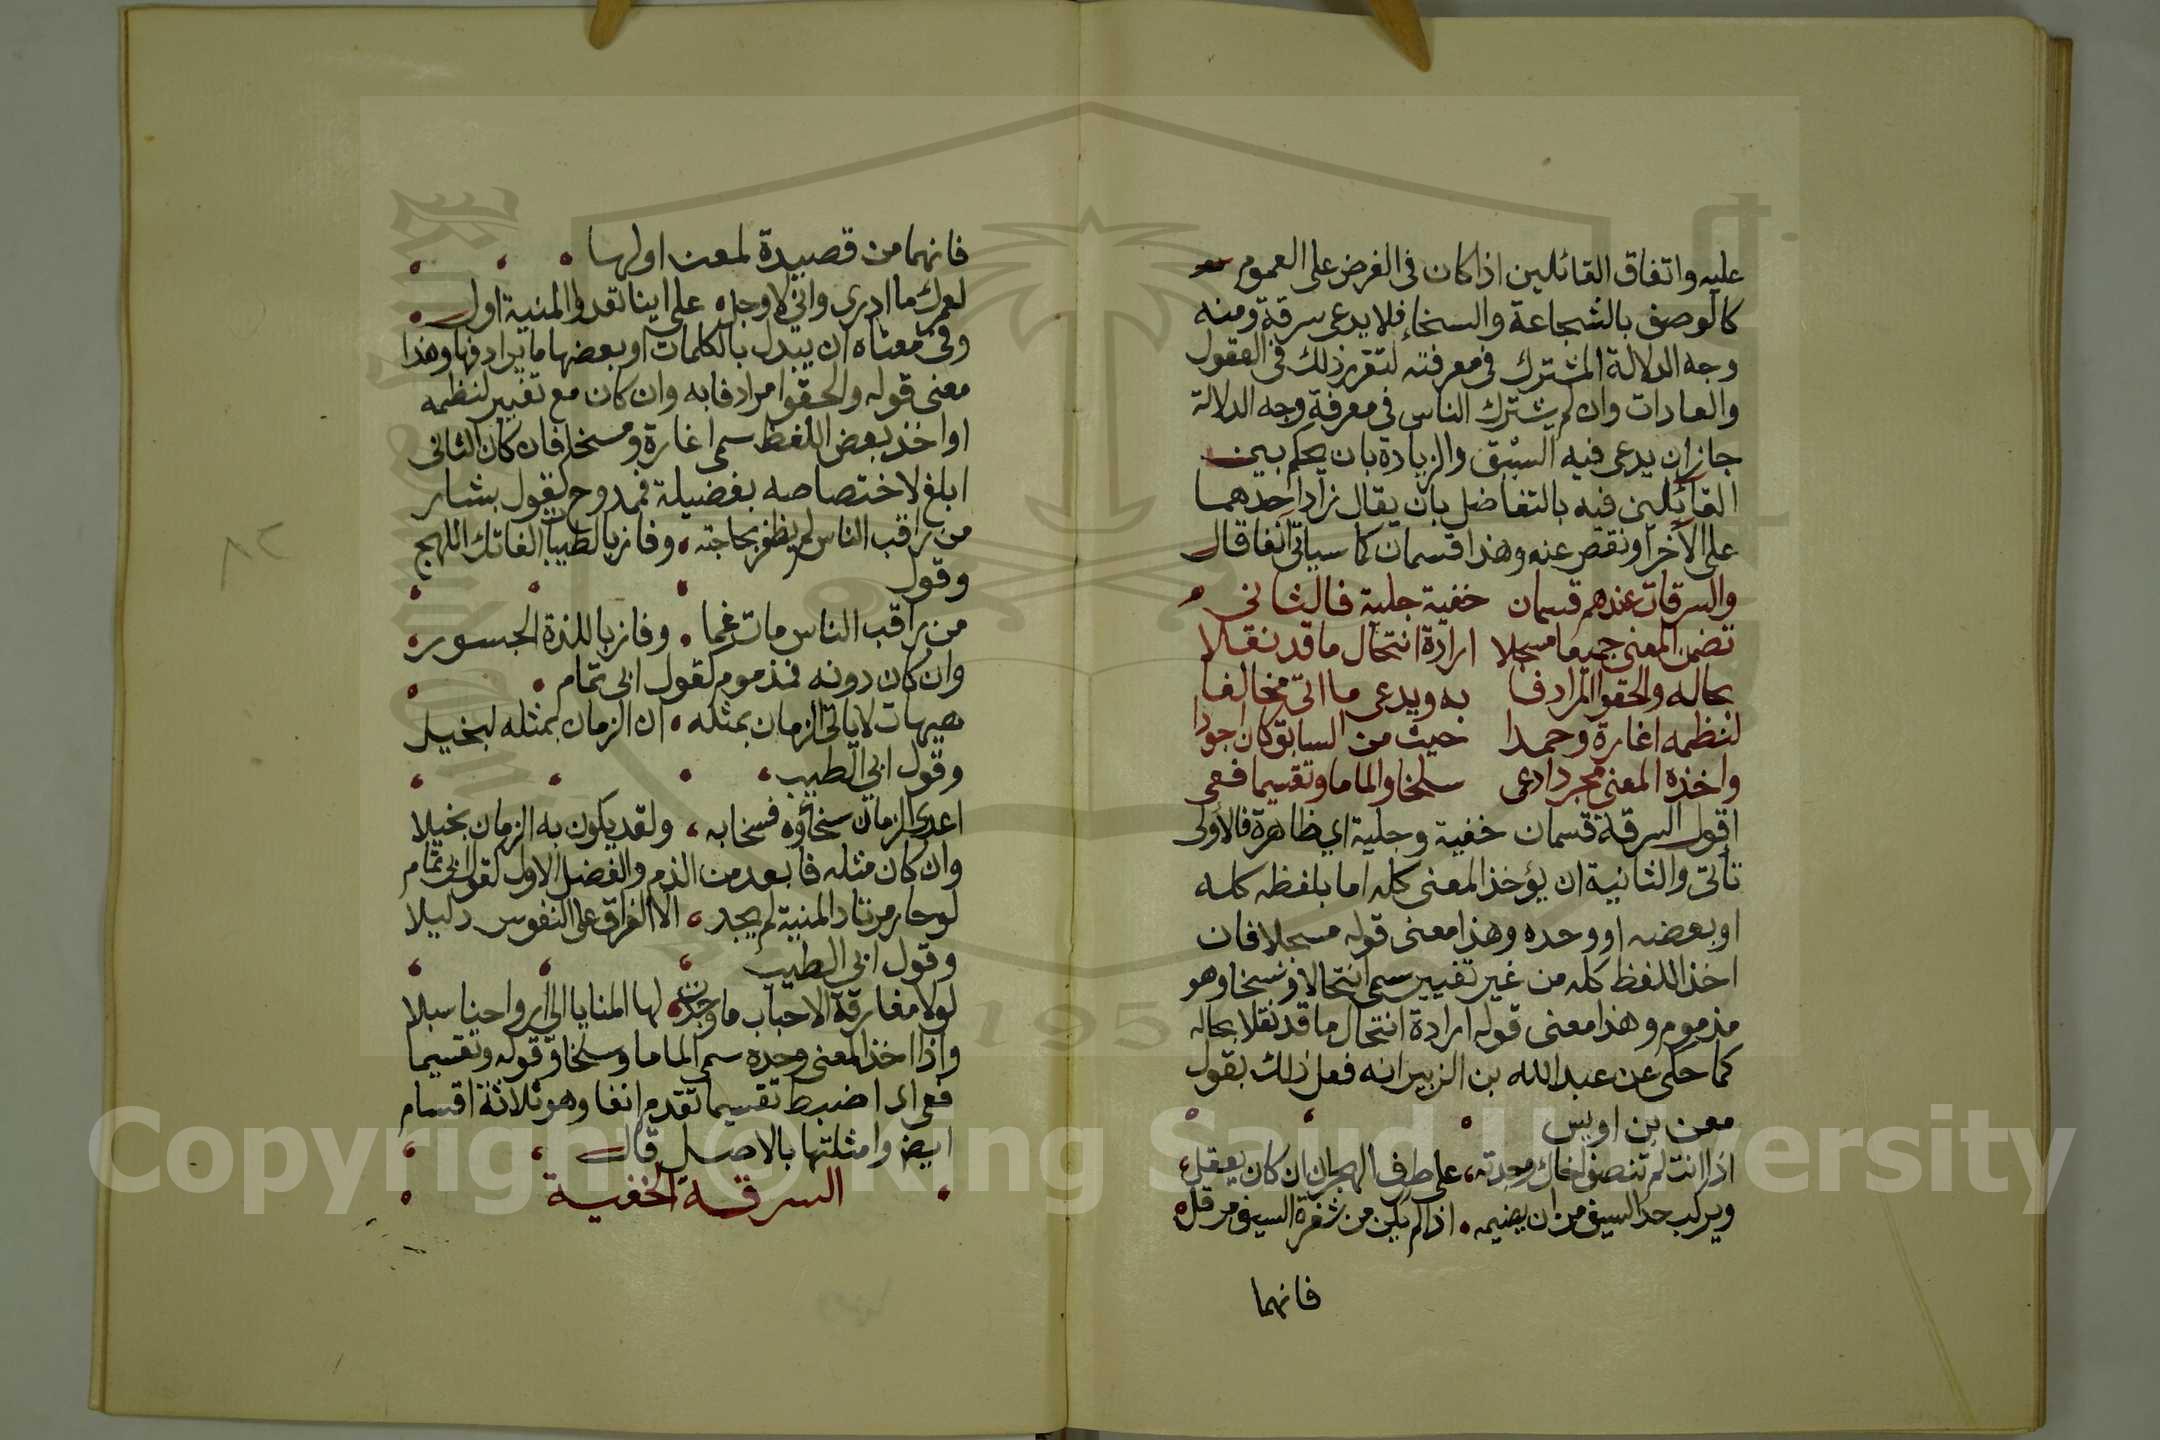 عليه واتفاق القائلين اذا كان في الغرض على العموم
كالوصف بالشجاعة والسخاء فلا يدعى سرقة ومنه
وجه الدلالة المشترك في معرفته لتقرر ذلك في العقول
والعادات وان لم يشترك الناس في معرفة وجه الدلالة
جاز ان يدعى فيه السبق والزيادة بان يحكم بين
القائلين فيه بالتفاضل بان يقال زاد احدهما
على الآخر او نقص عنه وهذا قسمان كما سيأتي آنفا قال
والسرقات عندهم قسمان خفية جلية فالثاني
تضمن المعنى جميعا مسجلا ارادة انتحال ما قد نقلا
بحاله والحقوا المرادفا به ويدعى ما اتى مخالفا
لنظمه اغارة وحمدا حيث من السابق كان اجودا
واخذه المعنى مجردا دعى سلخا والماما وتقسيما فعى
اقول السرقة قسمان خفية وجلية اي ظاهرة فالاولى
تأتي والثانية ان يؤخذ المعنى كله اما بلفظه كله
او بعضه او وحده وهذا معنى قوله مسجلا فان
اخذ اللفظ كله من غير تغيير سمي انتحالا ونسخا وهو
مذموم وهذا معنى قوله ارادة انتحال ما قد نقلا بحاله
كما حكى عن عبد الله بن الزبير انه فعل ذلك بقول
معن بن اويس
اذا انت لم تنصف اخاك وجدته على طرف الهجران ان كان يعقل
ويركب حد السيف من ان يضيمه اذا لم يكن من شفرة السيف مزحل
فانهما
فانهما من قصيدة لمعن اولها
لعمرك ما ادرى واني لاوجل على اينا تعدوا المنية اول
وفي معناه ان يبدل بالكلمات او بعضها ما يرادفها وهذا
معنى قوله والحقوا مرادفا به وان كان مع تغيير لنظمه
او اخذ بعض اللفظ سمى اغارة ومسخا فان كان الثاني
ابلغ لاختصاصه بفضيلة فممدوح كقول بشار
من راقب الناس لم يظفر بحاجته وفاز بالطيبات الفاتك اللهج
وقول
من راقب الناس مات غما وفاز باللذة الجسور
وان كان دونه فمذموم كقول ابي تمام
هيهات لا ياتي الزمان بمثله ان الزمان بمثله لبخيل
وقول ابي الطيب
اعدى الزمان سخاؤه فسخا به ولقد يكون به الزمان بخيلا
وان كان مثله فابعد من الذم والفضل للاول كقول ابي تمام
لو حار مرتاد المنية لم يجد الا الفراق على النفوس دليلا
وقول ابي الطيب
لولا مفارقة الاحباب ما وجدت لها المنايا الى ارواحنا سبلا
واذا اخذ المعنى وحده سمى الماما وسلخا وقوله وتقسيما
فعى اى اضبط تقسيما تقدم انفا وهو ثلاثة اقسام
ايض وامثلتها بالاصل قال
السرقة الخفية